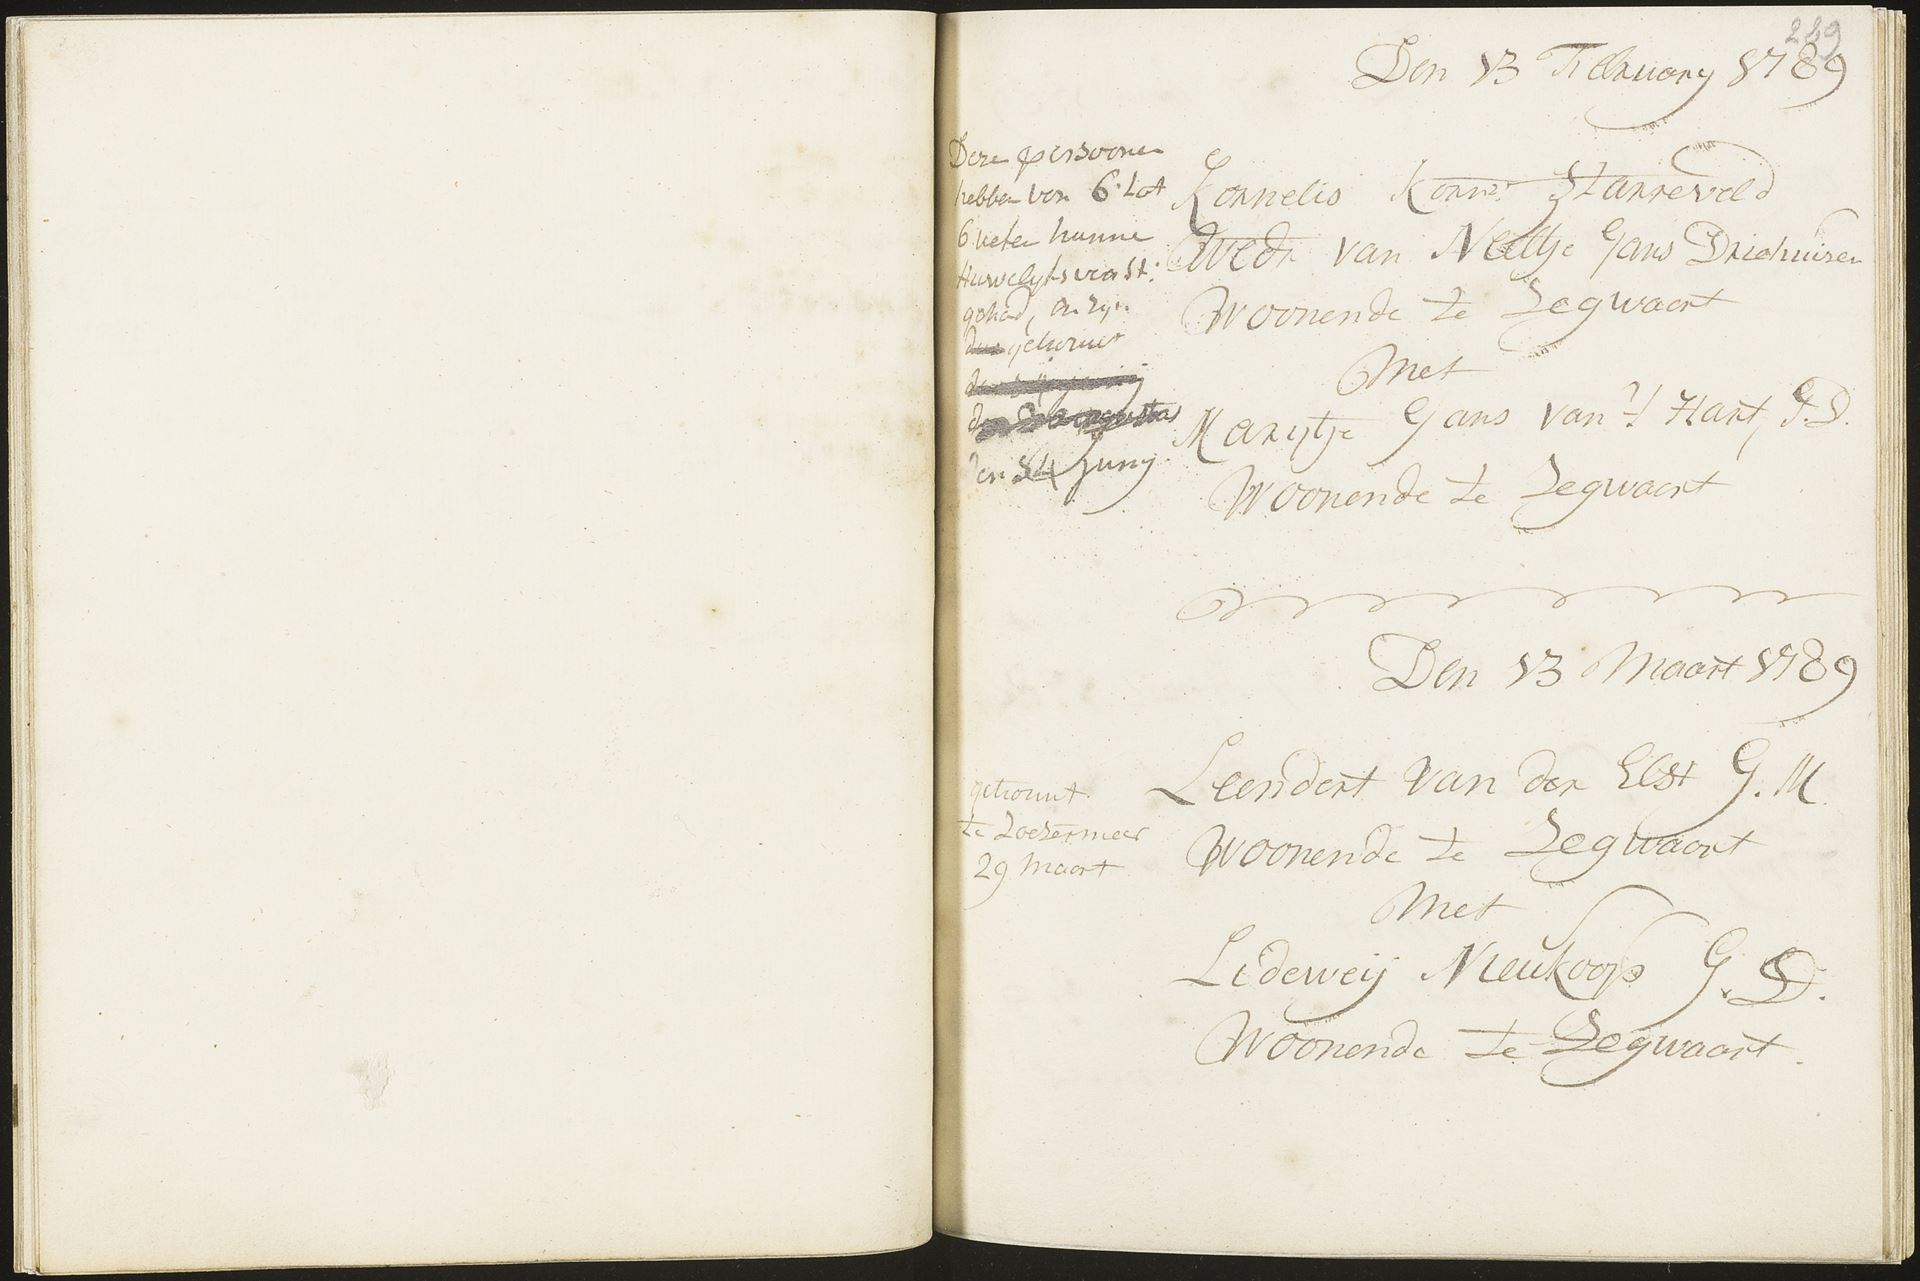 289
Den 13 February 1789
Deze persoonen
hebben von 6 tot
6 weken hunne
Huwelyks
gehad, en zyn
getrouwt
den 14 Juny
Kornelis Kornzn Starreveld
Wedr van Neeltje Jans Driehuisen
Woonende te Zegwaert
Met
Marijtje Jans van 't Hart, J. D.
Woonende te Zegwaert
Den 13 Maart 1789
getrouwt
te Zoetermeer
29 Maart
Leendert van der Elst J. M.
Woonende te Zegwaart
Met
Lideweij Nieukoop J. D.
Woonende te Zegwaart.